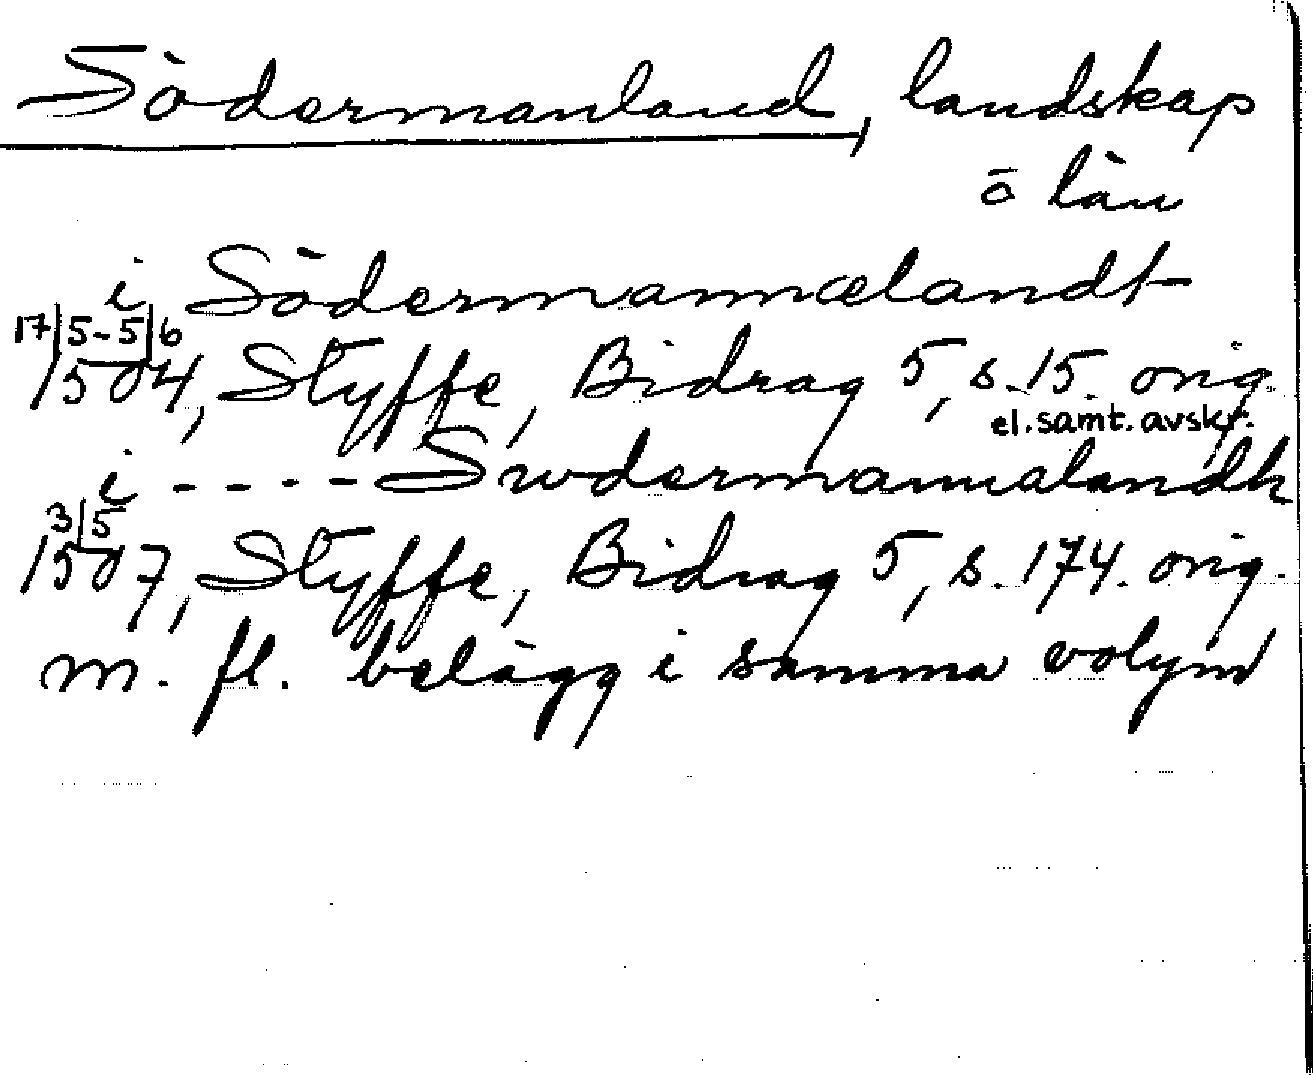 Södermanland, landskap
o län
i Södermannælandt
17/5-5/6
1504, Styffe, Bidrag 5, s. 15. orig.
el. samt. avskr.
i - - - - Swdermannalandh
3/5
1507, Styffe, Bidrag 5, s. 174. orig.
m. fl. belägg i samma volym